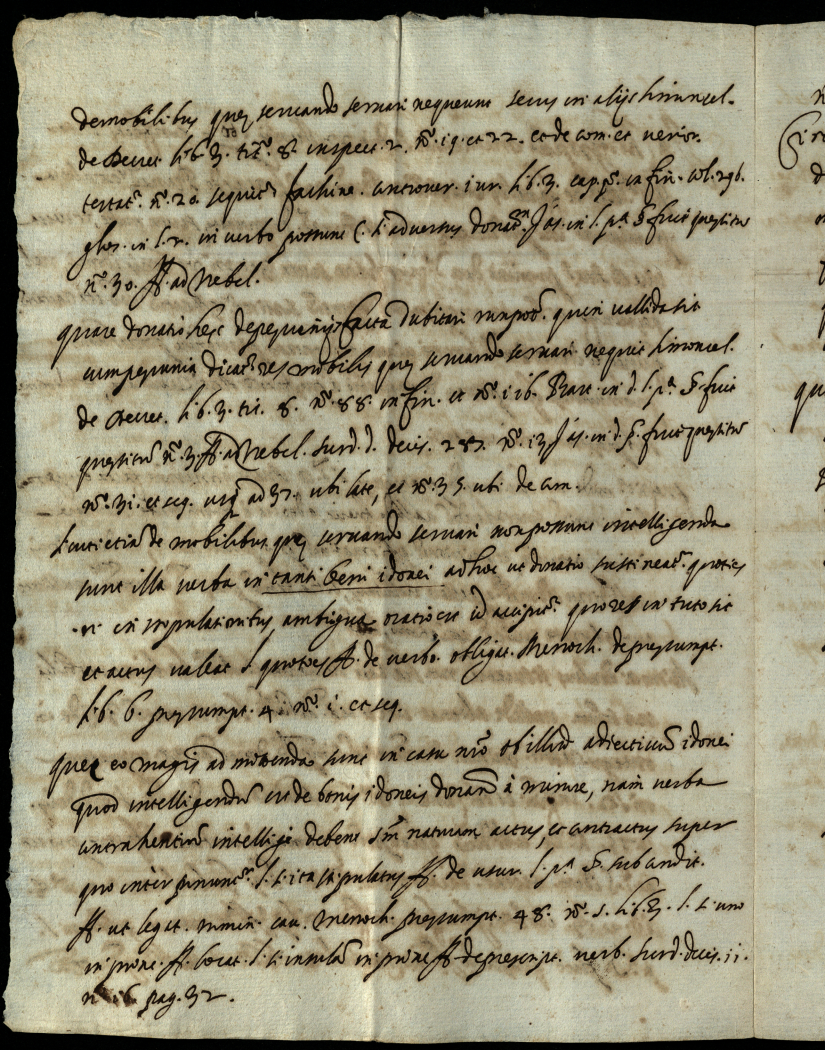 demobilibus quę seruando seruari nequeunt secus in alijs Simoncel.
de Decret. lib. 3. tit. 8. inspect. 2. nº. 19. et 22. et de com. et
nº. 20. sequitr Fachine. controuer. iur. lib. 3. cap. pº. in fin. col. 296.
glos. in l. 2. in verbo possunt C. si aduersus donat. Jas. in l. pª § fuit quęsitũ
nº. 30. ff. ad Trebel.
quare donatio hęc depequnijs facta dubitari non pot. quin vallida sit
cum pequnia dicatr res mobilis quę seruando seruari nequit Simoncel.
de Decret. lib. 3. tit. 8. nº. 88. in fin. et nº. 116. Bart. in d. l. pª § fuit
quęsitũ nº. 3. ff. ad Trebel. Surd. d. decis. 287. nº. 13 Jas. in d. § fuit quęsitũ
nº. 31. et seq. usq ad 37. ubi late, et nº. 35. ubi de com.
sicuti etiã de mobilibus quę seruando seruari non possunt intelligenda
sunt illa verba in tanti beni idonei ad hoc ut donatio sustineatr. quoties
n. in stipulationibus ambigua oratio est id accipitr. quo res in tuto sit
et actus valeat l. quoties ff. de verbo. obligat. Menoch. de presumpt.
lib. 6. presumpt. 4. nº. 1. et seq.
quę eo magis admittenda sunt in casu nrõ ob illud adiectiuũ idonei
quod intelligendũ est de bonis idoneis donañ à minore, nam verba
contrahentiũ intelligi debent sm naturam actus, et contractus super
quo interponuntr. l. si ita stipulatus ff. de usur. l. pª § sub condit.
ff. ut legat. nomin. cau. Menoch. presumpt. 48. nº. 5. lib. 3. l. si uno
in princ. ff. locat. l. si insulã in princ ff. de prescript. verb. Surd. decis. 11.
nº 16 pag. 32.